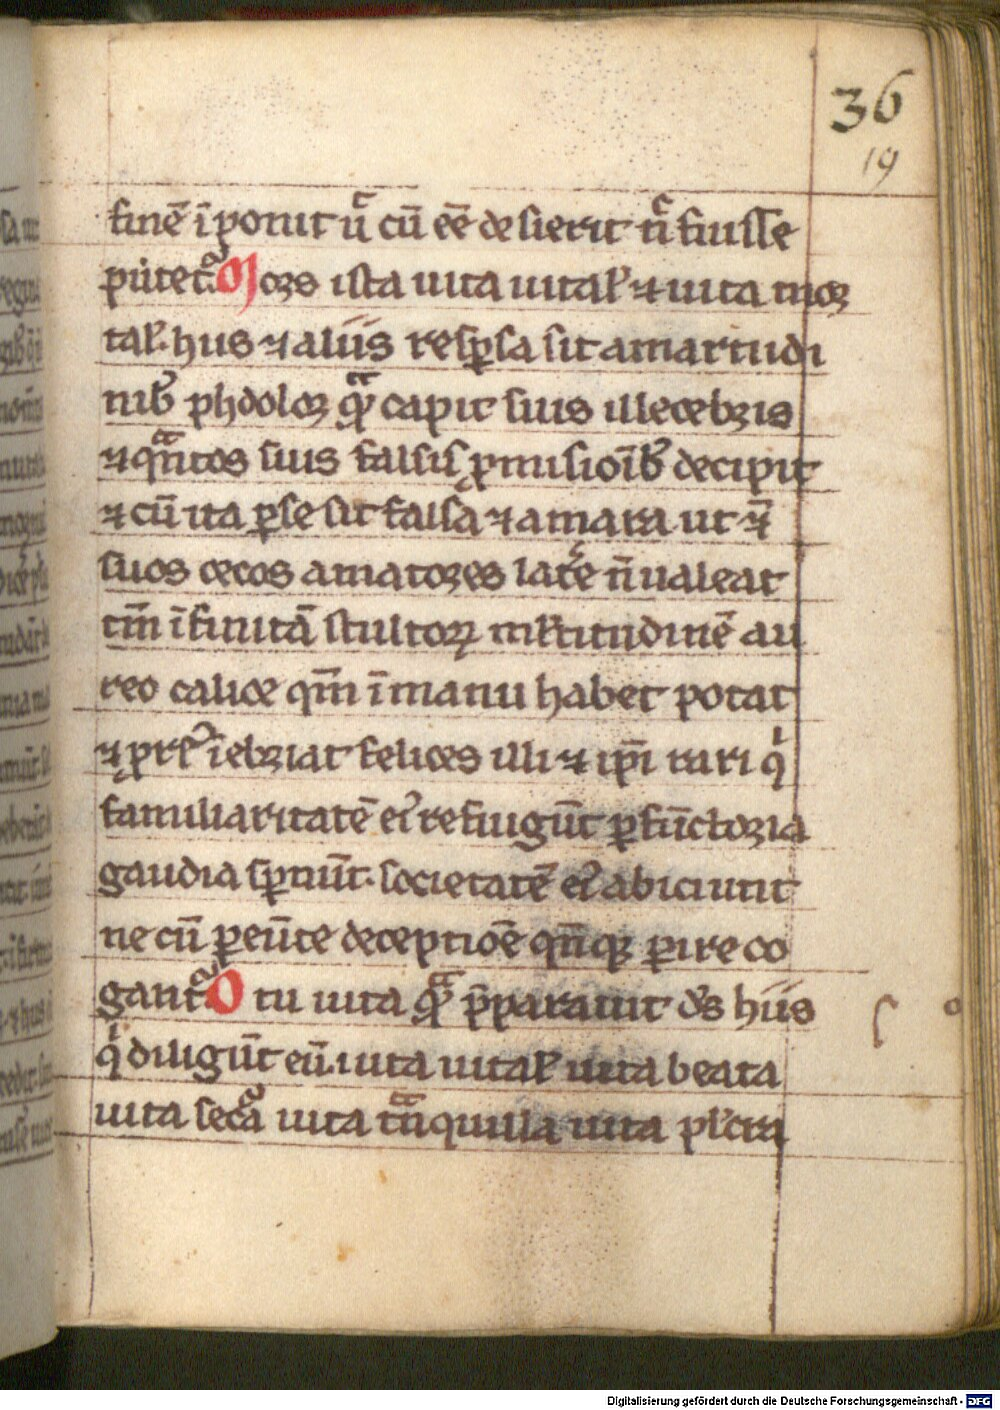 36
19
finē īponit ut̄ cū eē desierit n̄ fuisse
putet᷑ Mors ista uita uital̕ ⁊ uita mor
tal̕. hiis ⁊ aliis respersa sit amaritudi
nib̕ ph dolor qᷓm capit suis illecebris
⁊ qᷓntos suis falsis ꝓmisioīb̕ decipit
⁊ cū ita ꝑse sit falsa ⁊ amara ut ⁊
suos cecos amatores latere n̄ ualeat
tm̄ īfinitā stultoꝝ ml̕titudinē au
reo calice qm̄ ī manu habet potat
⁊ ꝓrs̕ īebriat felices illi ⁊ ip̄i rari qi
familiaritatē ei᷒ refugiūt ꝑfūctoria
gaudia sp̄nūt. societatē ei᷒ abiciunt
ne cū ꝑeūte deceptiōe qn̄q̨ ꝑire co
gant᷑ O tu uita qᷓm p̄parauit ds̄ hiis
qi diligūt eū. uita uital̕ uita beata
uita secᷓa uita tᷓnquilla uita pl̕cra
Digitalisierung gefördert durch die Deutsche Forschungsgemeinschaft - DFG